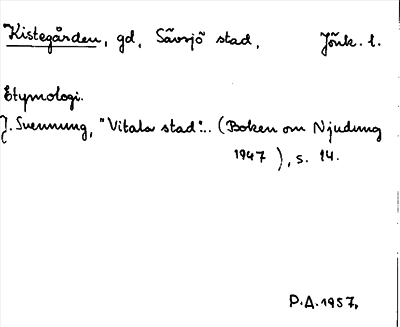 Kistegården, gd, Sävsjö stad, Jönk. l.
Etymologi.
J. Svennung, "Vitala stad"... (Boken om Njudung
1947), s. 14.
P.A. 1957.